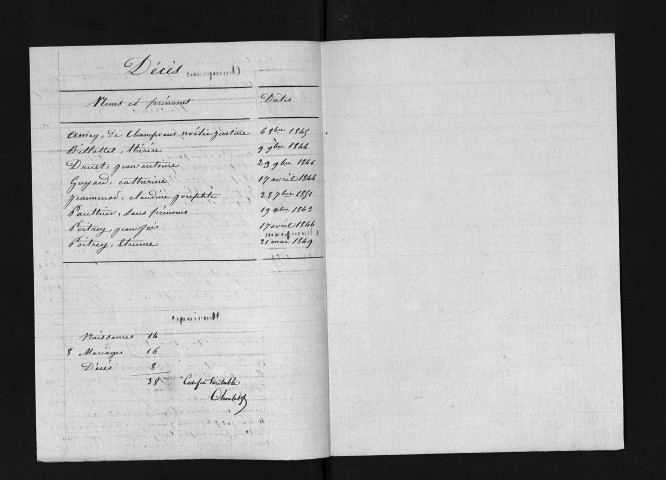 Décès
Noms et prénoms Dates
Amey, de Champvans noélie justine 6 8bre 1845
Billottet, thérèse 9 9bre 1844
Druet, jean antoine 29 9bre 1846
Guyard, catherine 17 avril 1844
jeannenod, claudine josephte 28 7bre 1851
Paulthier, sans prénoms 19 xbre 1843
Poitrey, jean fois 17 avril 1844
Poitrey, Etienne 21 mai 1849
Naissances 14
8 Mariages 16
Décès 8
38 Certifié Véritable